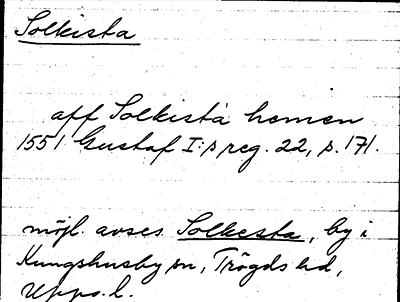 Solkista
aff Solkista hemen
1551 Gustaf I:s reg. 22, s. 171.
möjl. avses Solkesta, by i
Kungshusby sn, Trögds hd,
Upps. l.